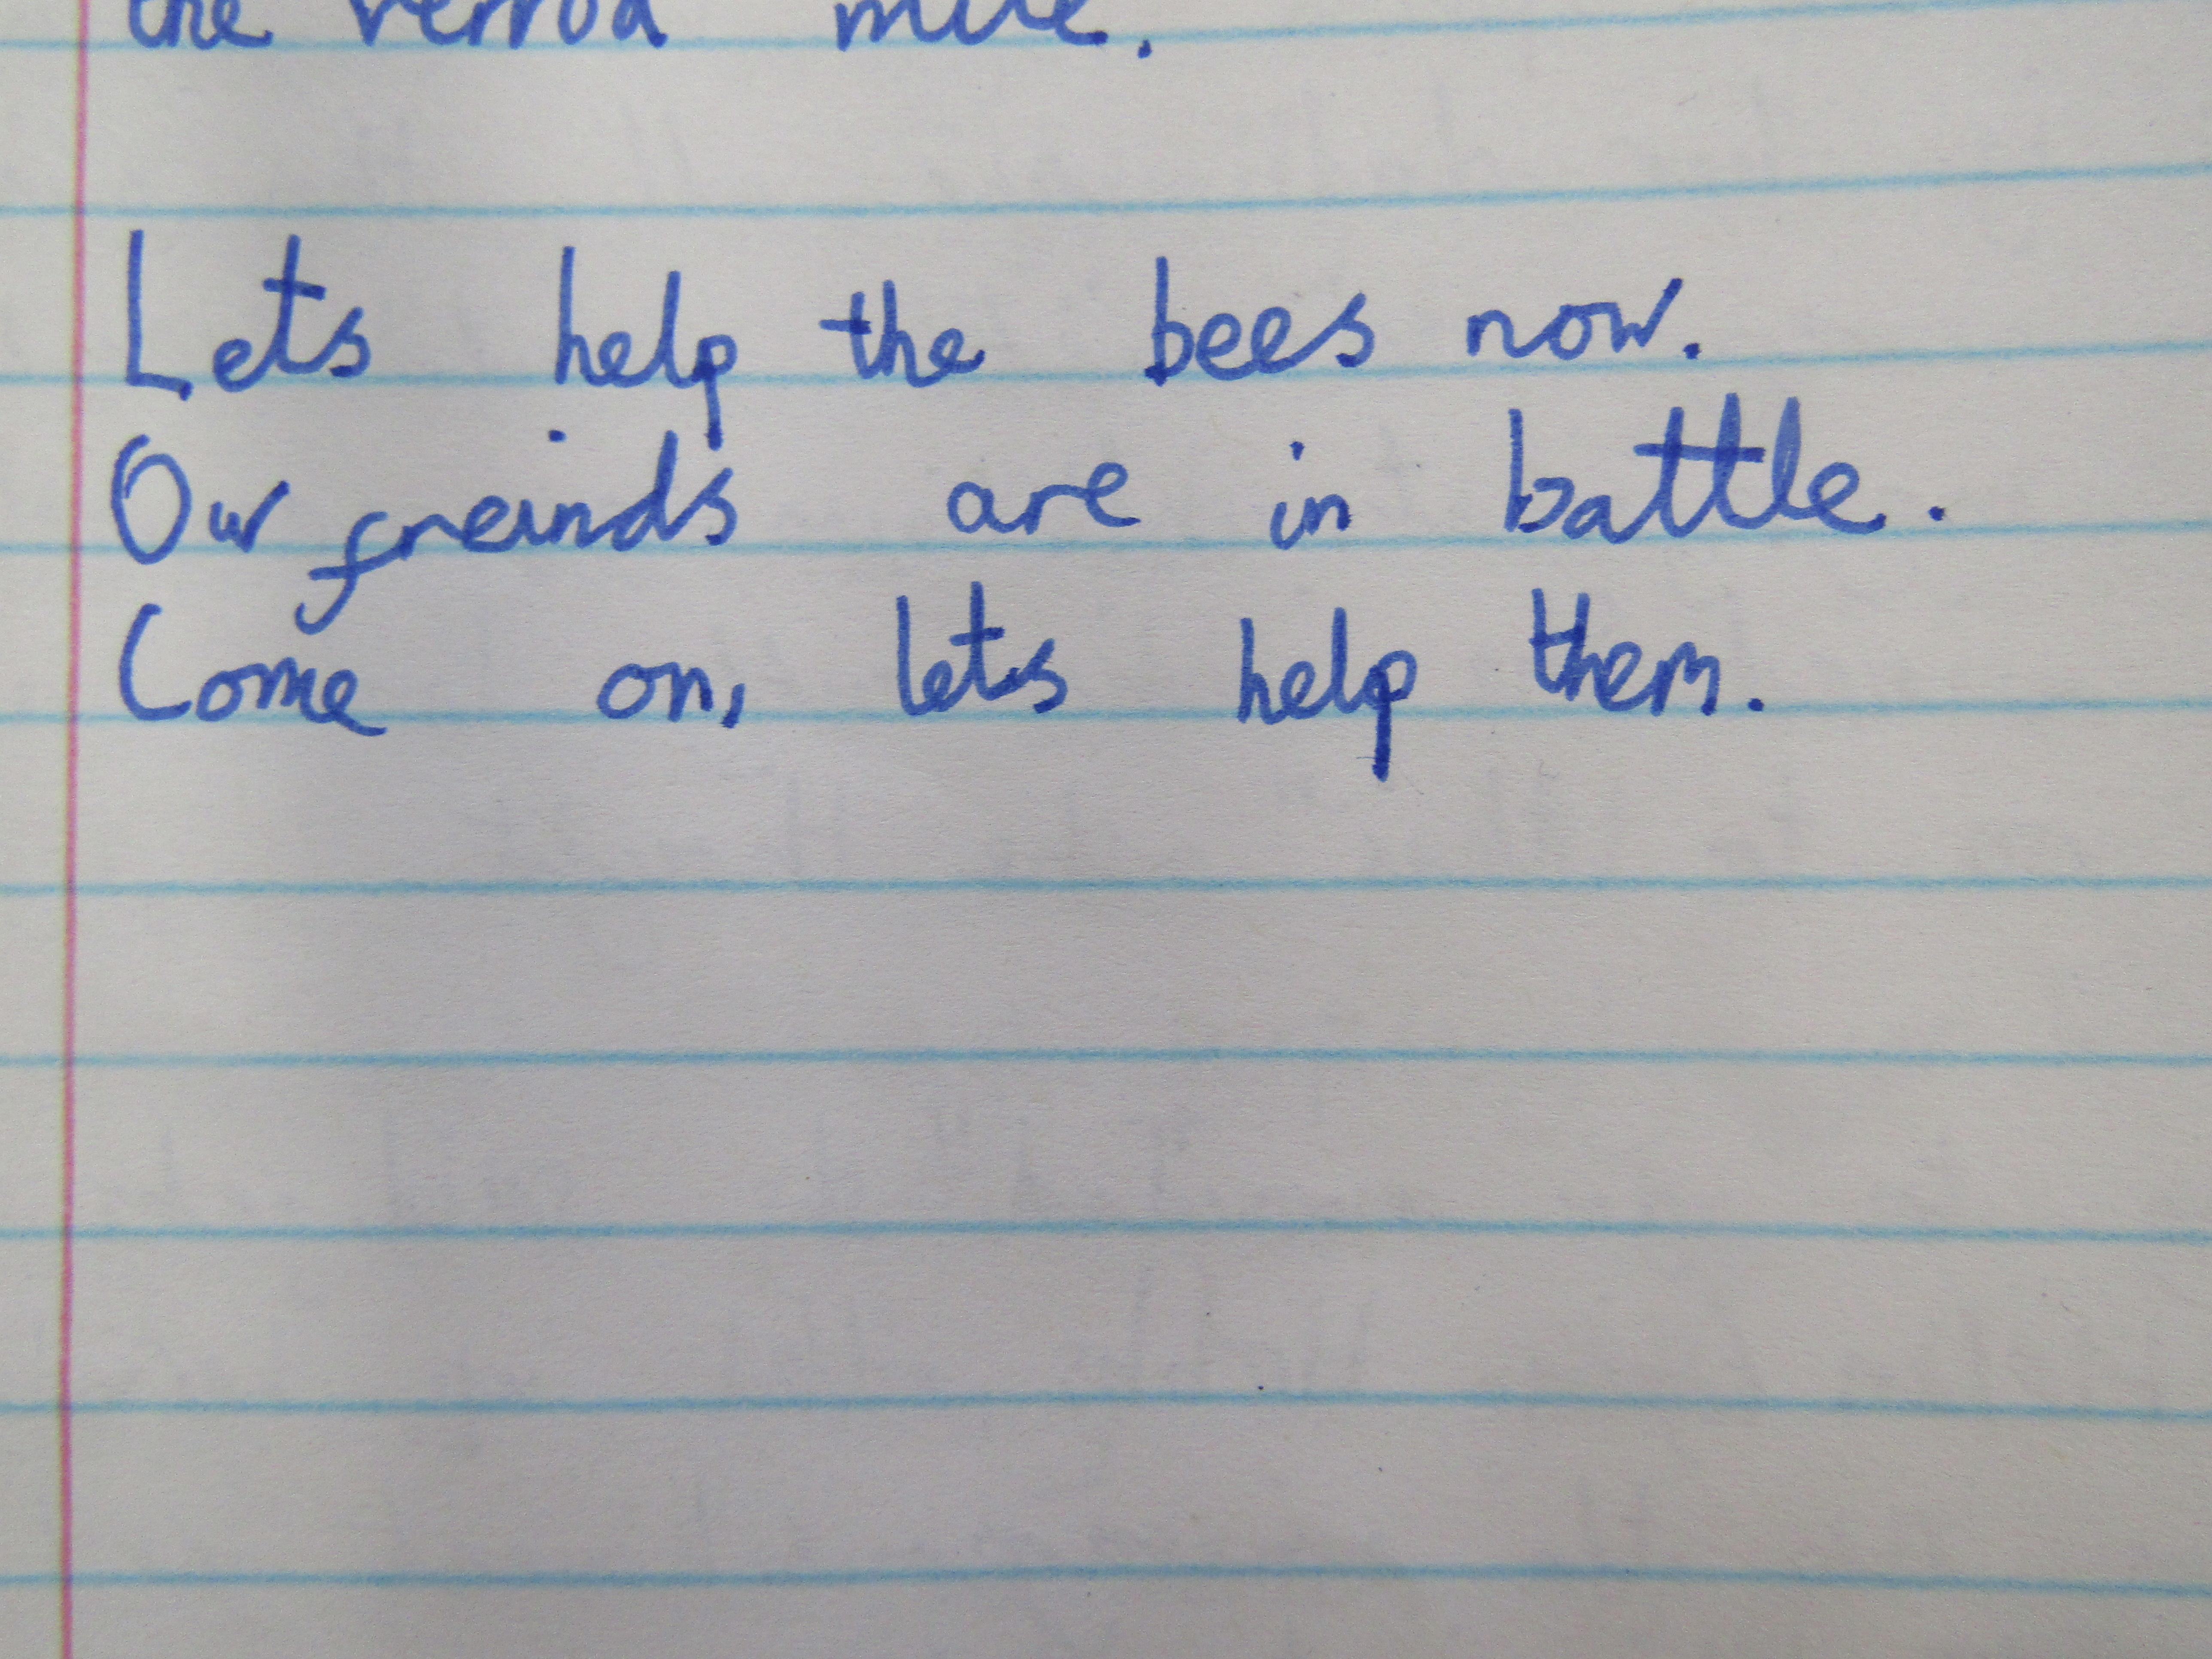 the verroa mite.
Lets help the bees now.
Our freinds are in battle.
Come on, lets help them.